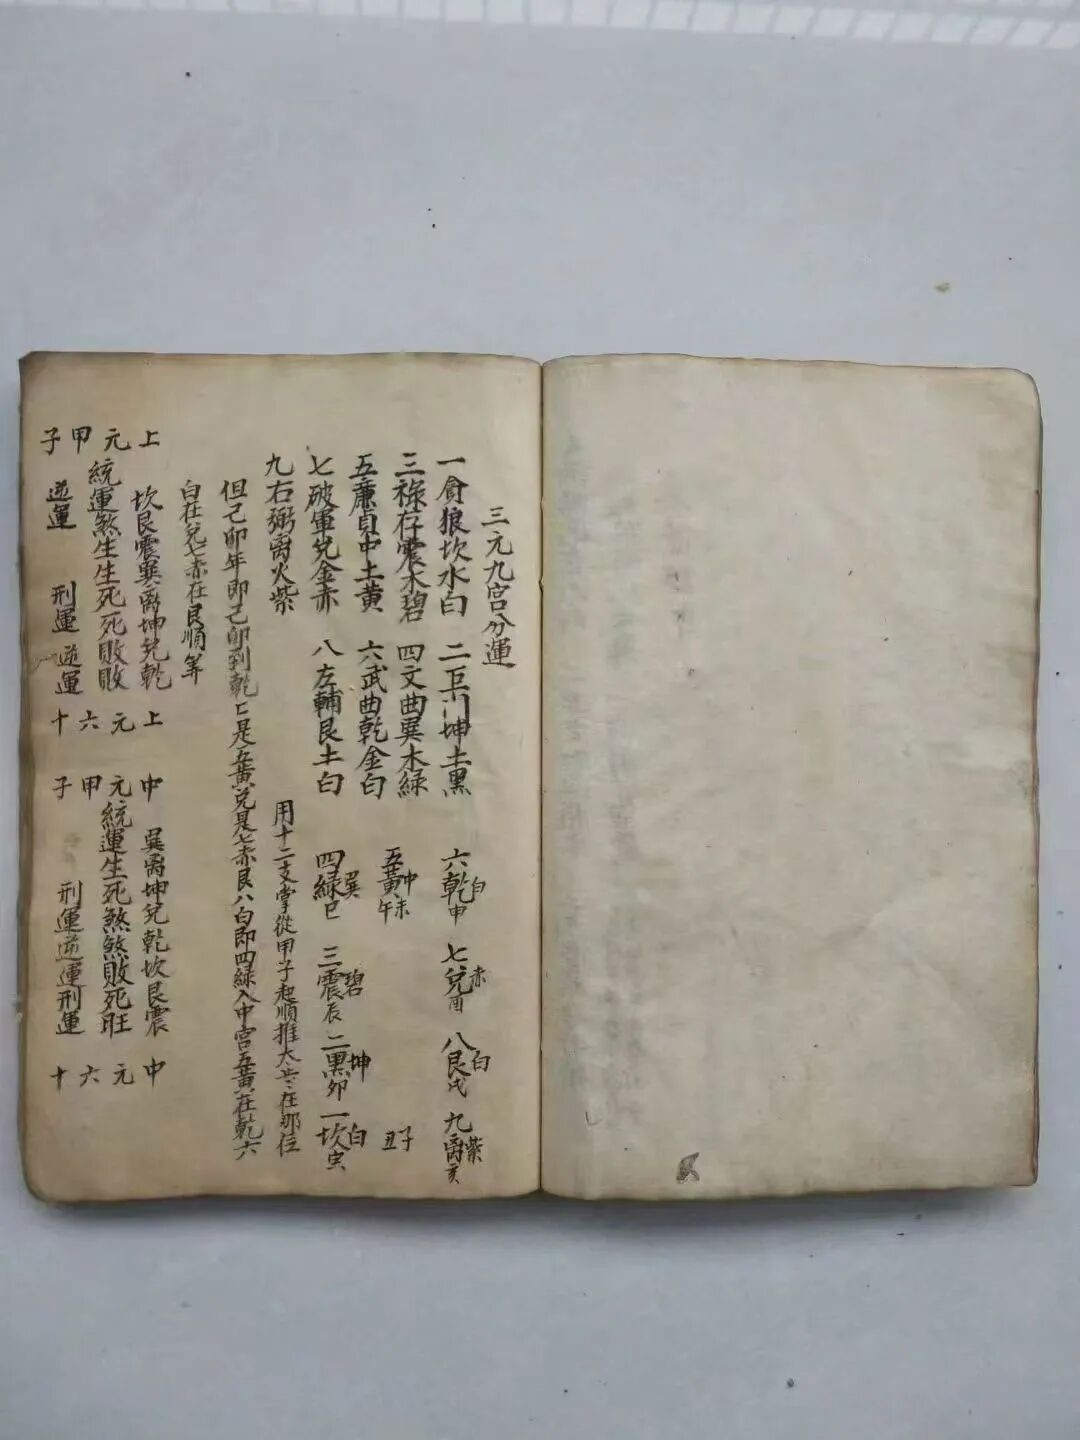 三元九宮分運
一貪狼坎水白 二巨门坤土黑
三祿存震木碧 四文曲巽木綠
五廉貞中土黃 六武曲乾金白
七破軍兌金赤 八左輔艮土白
九右弼离火紫
六乾白申 七兌赤酉 八艮白戌 九离紫亥
五黃中午未 子丑
四綠巽巳 三震碧辰 二黑坤卯 一坎白寅
用十二支掌從甲子起順推太歲在那位
但己卯年即己卯到乾是五黃兌是七赤艮八白即四綠入中宮五黃在乾六
白在兌七赤在艮順筭
上元甲子
坎艮震巽离坤兌乾
統運煞生生死死敗敗
逆運 刑運 逆運
上元六十
中元甲子
巽离坤兌乾坎艮震
統運生死煞煞敗死旺
刑運逆運刑運
中元六十